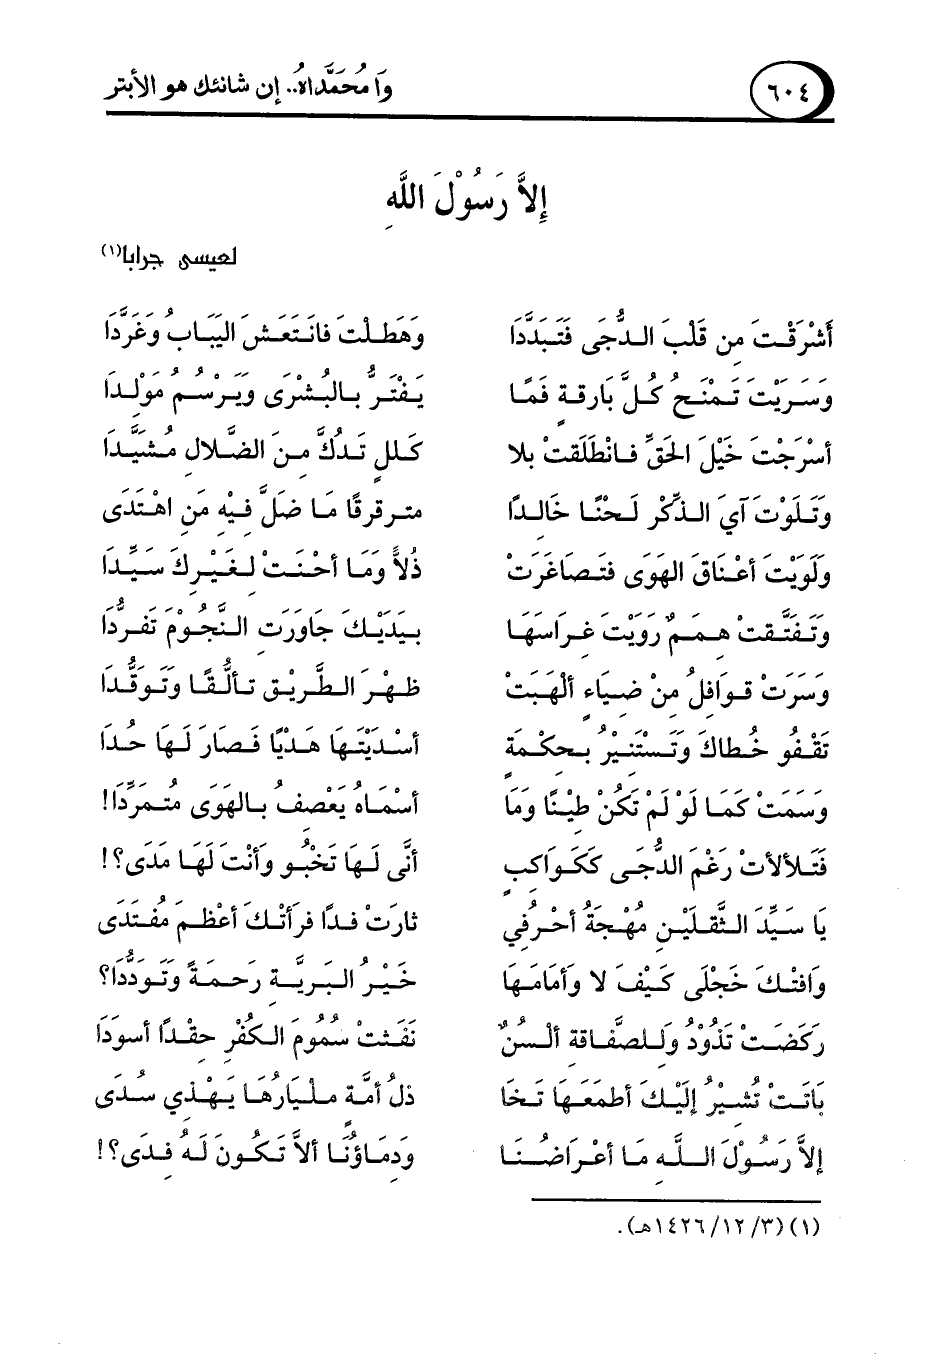 وَا مُحَمَّدَاهُ.. إن شانئك هو الأبتر
٦٠٤
إِلاَّ رَسُوْلَ اللَّهِ
لعيسى جرابا(١)
أَشْرَقْتَ مِن قَلْبِ الدُّجَى فَتَبَدَّدَا وَهَطَلْتَ فَانْتَعَشَ اليَبَابُ وَغَرَّدَا
وَسَرَيْتَ تَمْنَحُ كُلَّ بَارِقَةٍ فَمًا يَفْتَرُّ بِالبُشْرَى وَيَرْسُمُ مَوْلِدَا
أَسْرَجْتَ خَيْلَ الحَقِّ فَانْطَلَقَتْ بِلا كَلَلٍ تَدُكُّ مِنَ الضَّلالِ مُشَيَّدَا
وَتَلَوْتَ آيَ الذِّكْرِ لَحْنًا خَالِدًا مترقرقًا مَا ضَلَّ فِيْهِ مَنِ اهْتَدَى
وَلَوَيْتَ أَعْنَاقَ الهَوَى فَتَصَاغَرَتْ ذُلاًّ وَمَا أَحْنَتْ لِغَيْرِكَ سَيِّدَا
وَتَفَتَّقَتْ هِمَمٌ رَوَيْتَ غِرَاسَهَا بِيَدَيْكَ جَاوَزَتِ النُّجُوْمَ تَفَرُّدَا
وَسَرَتْ قَوَافِلُ مِنْ ضِيَاءٍ أَلْهَبَتْ ظَهْرَ الطَّرِيْقِ تَأَلُّقًا وَتَوَقُّدَا
تَقْفُو خُطَاكَ وَتَسْتَنِيْرُ بِحِكْمَةٍ أَسْدَيْتَهَا هَدْيًا فَصَارَ لَهَا حُدَا
وَسَمَتْ كَمَا لَوْ لَمْ تَكُنْ طِيْنًا وَمَا أَسْمَاهُ يَعْصِفُ بِالهَوَى مُتَمَرِّدَا!
فَتَلأْلأَتْ رَغْمَ الدُّجَى كَكَوَاكِبٍ أَنَّى لَهَا تَخْبُو وَأَنْتَ لَهَا مَدَى؟!
يَا سَيِّدَ الثَّقَلَيْنِ مُهْجَةُ أَحْرُفِي ثَارَتْ فِدًا فَرَأَتْكَ أَعْظَمَ مُفْتَدَى
وَافَتْكَ خَجْلَى كَيْفَ لا وَأَمَامَهَا خَيْرُ البَرِيَّةِ رَحمَةً وَتَوَدُّدَا؟
رَكَضَتْ تَذُوْدُ وَلِلصَّفَاقَةِ أَلْسُنٌ نَفَثَتْ سُمُومَ الكُفْرِ حِقْدًا أَسْوَدَا
بَاتَتْ تُشِيْرُ إِلَيْكَ أَطمَعَهَا تَخَا ذلُ أُمَّةٍ مِلْيَارُهَا يَهْذِي سُدَى
إِلاَّ رَسُوْلَ اللَّهِ مَا أَعْرَاضُنَا وَدِمَاؤُنَا أَلاَّ تَكُونَ لَهُ فِدَى؟!
(١) (٣/ ١٢/ ١٤٢٦هـ).